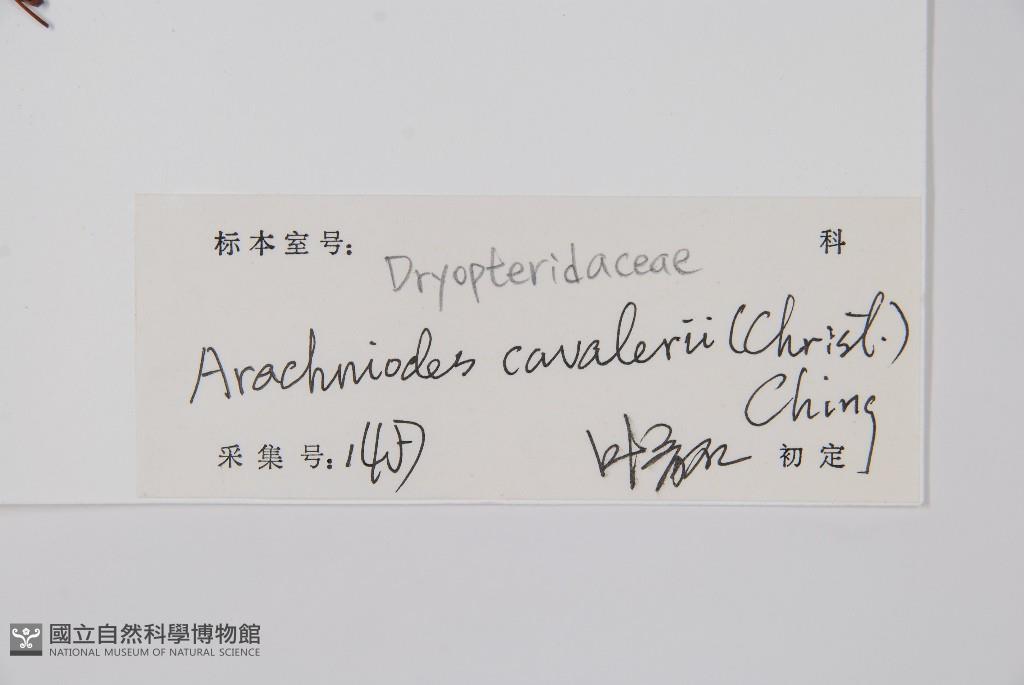 标本室号: 科
Dryopteridaceae
Arachniodes cavalerii (Christ.)
Ching
采集号: 初定
國立自然科學博物館
NATIONAL MUSEUM OF NATURAL SCIENCE